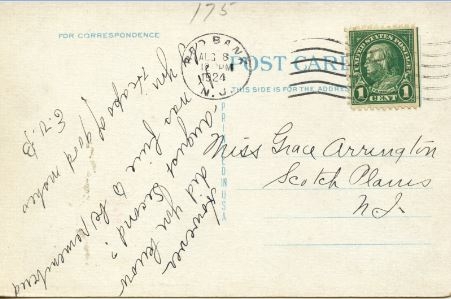 175
FOR CORRESPONDENCE
RED BANK
AUG 8
12 PM
1924
N.J.
POST CARD
THIS SIDE IS FOR THE ADDRESS
UNITED STATES POSTAGE
1 CENT 1
However
did you know
August Second?
It was fine to be remembered
you
Heaps of good wishes
E.V.B.
Miss Grace Arrington
Scotch Plains
N.J.